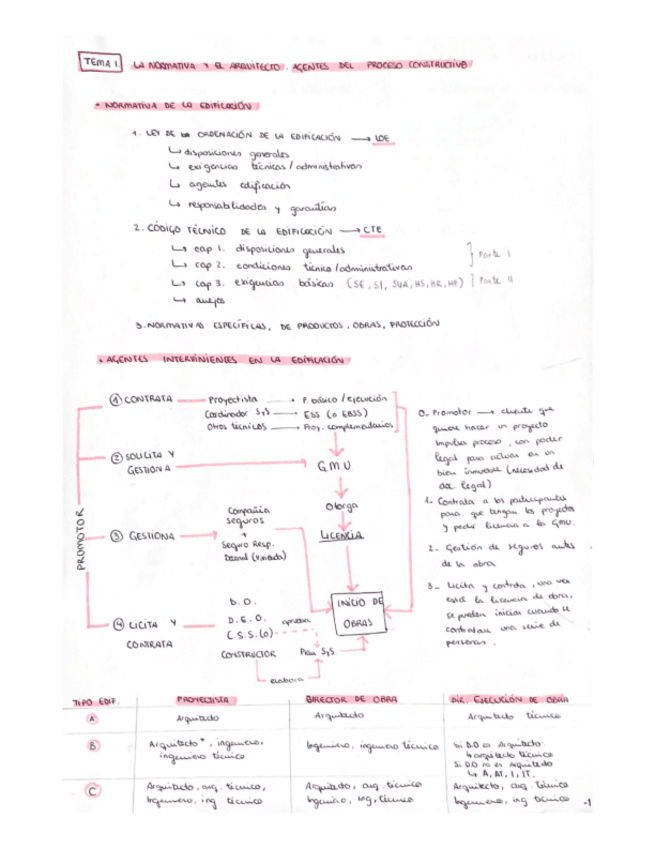 TEMA 1. LA NORMATIVA Y EL ARQUITECTO. AGENTES DEL PROCESO CONSTRUCTIVO
• NORMATIVA DE LA EDIFICACIÓN
1. LEY DE LA ORDENACIÓN DE LA EDIFICACIÓN → LOE
↳ disposiciones generales
↳ exigencias técnicas / administrativas
↳ agentes edificación
↳ responsabilidades y garantías
2. CÓDIGO TÉCNICO DE LA EDIFICACIÓN → CTE
↳ cap 1. disposiciones generales
↳ cap 2. condiciones técnico/administrativas
Parte I
↳ cap 3. exigencias básicas (SE, SI, SUA, HS, HR, HE) Parte II
↳ anejos
3. NORMATIVAS ESPECÍFICAS, DE PRODUCTOS, OBRAS, PROTECCIÓN
• AGENTES INTERVINIENTES EN LA EDIFICACIÓN
PROMOTOR
① CONTRATA
Proyectista → P. básico / ejecución
Cordinador SyS → ESS (o EBSS)
Otros técnicos → Proy. complementarios
② SOLICITA Y
GESTIONA
GMU
Otorga
LICENCIA
③ GESTIONA
Compañía
seguros
+
Seguro Resp.
Decenal (vivienda)
④ LICITA Y
CONTRATA
D.O.
D.E.O. aprueba
C.S.S.(o)
CONSTRUCTOR Plan SyS
elabora
INICIO DE
OBRAS
0_ Promotor → cliente que
quiere hacer un proyecto.
Impulsa proceso, con poder
legal para actuar en un
bien inmueble (necesidad de
doc legal)
1_ Contrata a los participantes
para que tengan los proyectos
y pedir licencia a la GMU.
2_ Gestión de seguros antes
de la obra
3_ Licita y contrata, una vez
está la licencia de obra,
se pueden iniciar cuando se
contratan una serie de
personas.
TIPO EDIF. PROYECTISTA DIRECTOR DE OBRA DIR. EJECUCIÓN DE OBRA
A Arquitecto Arquitecto Arquitecto técnico
B Arquitecto*, ingeniero, ingeniero técnico
Ingeniero, ingeniero técnico
Si D.O es Arquitecto:
↳ arquitecto técnico
Si D.O no es Arquitecto
↳ A, AT, I, IT.
C Arquitecto, arq. técnico,
Ingeniero, ing. técnico
Arquitecto, arq. técnico
Ingeniero, ing. técnico
Arquitecto, arq. técnico
Ingeniero, ing técnico
-1